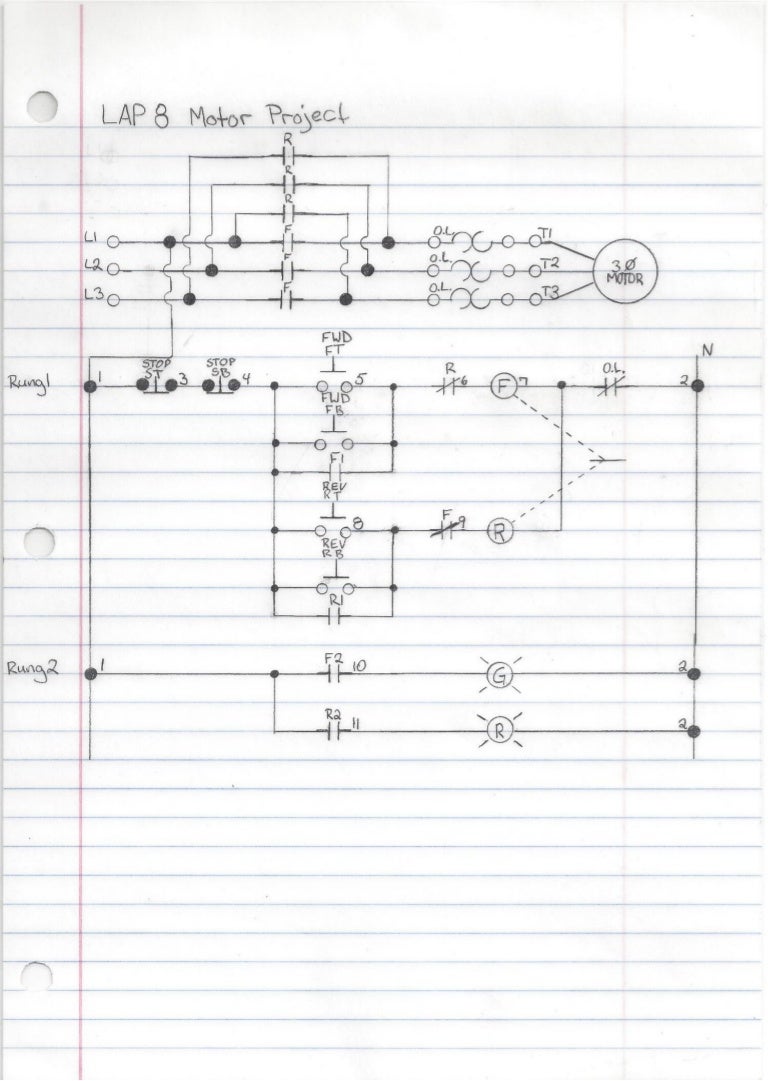 LAP 8 Motor Project
R
R
R
L1 F O.L. T1
L2 F O.L. T2 3 Ø
MOTOR
L3 F O.L. T3
FWD
FT
N
STOP
ST
STOP
SB
R O.L.
Rung1 1 3 4 5 6 F 7 2
FWD
FB
F1
REV
RT
8 F 9 R
REV
RB
R1
Rung2 1 F2 10 G 2
R2 11 R 2